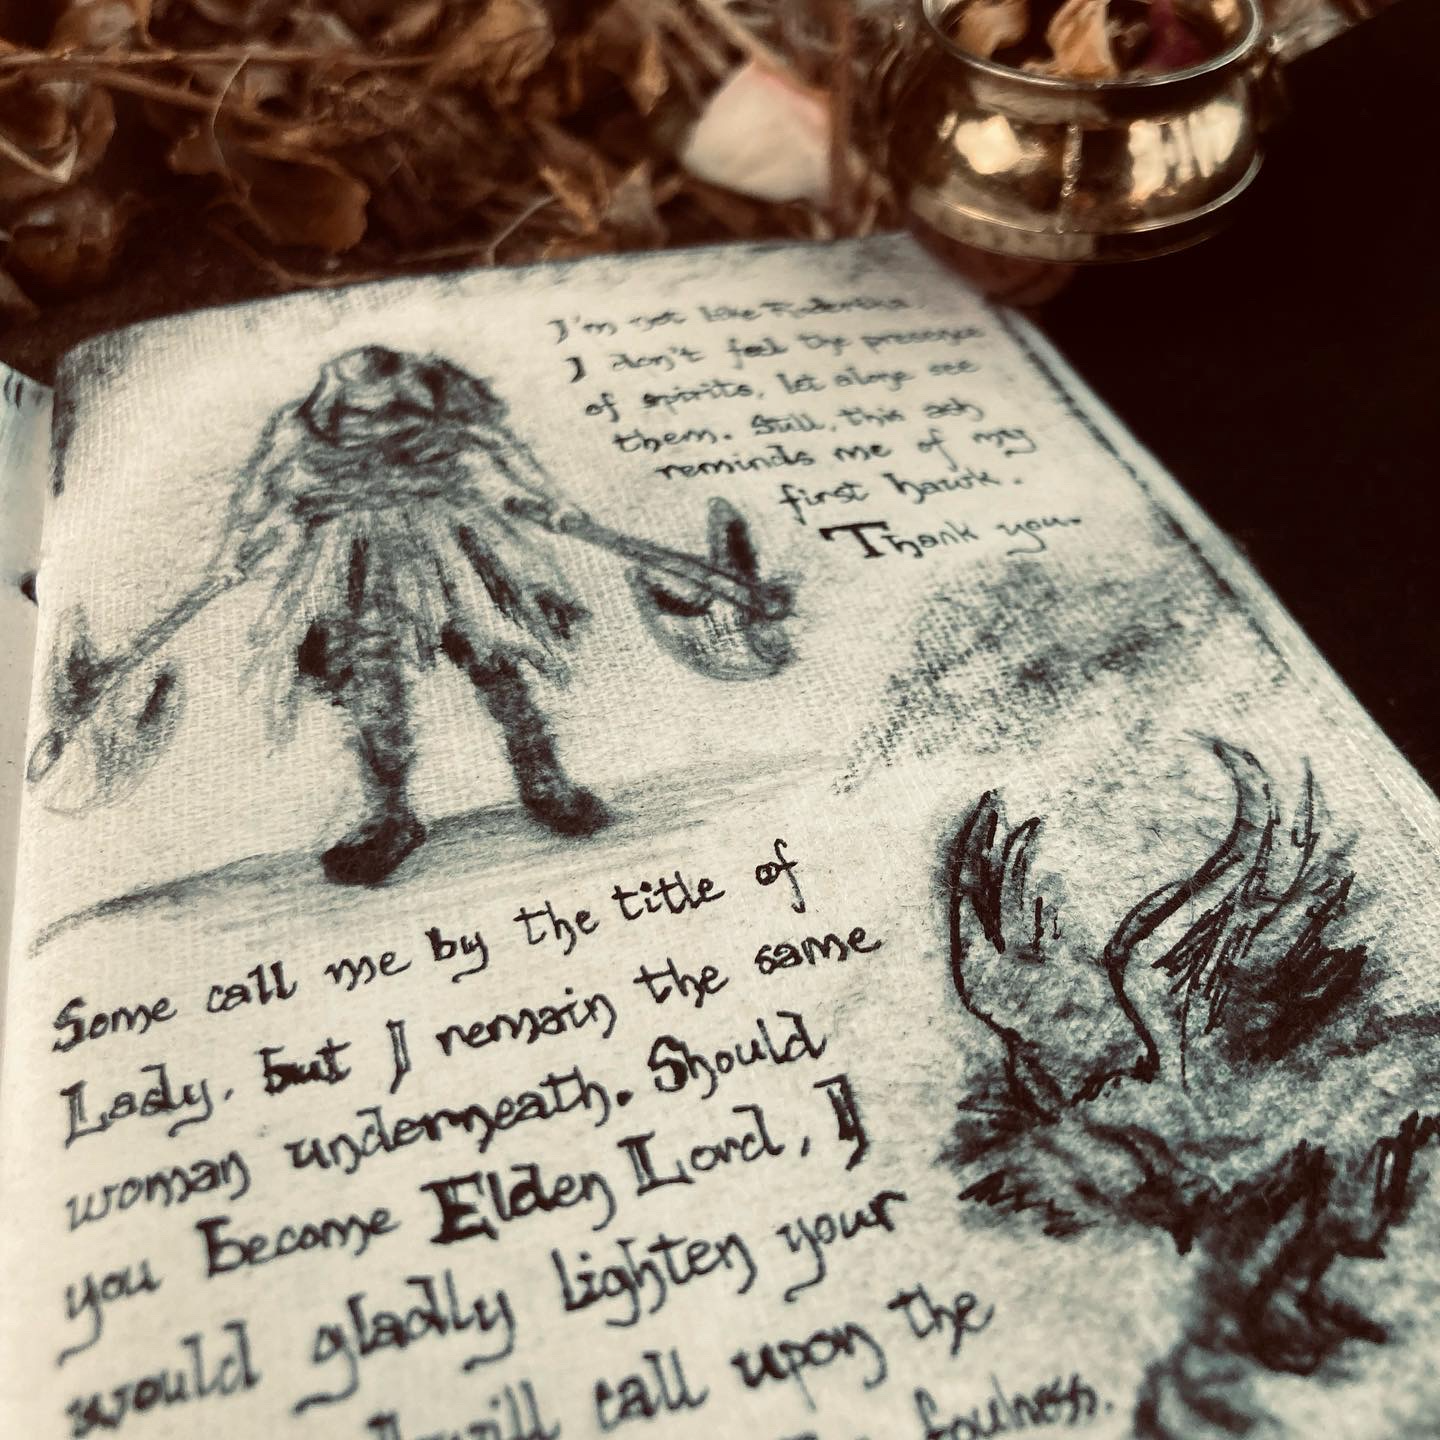 I'm not like Roderika
I don't feel the presence
of spirits, let alone see
them. Still, this ash
reminds me of my
first hawk.
Thank you.
Some call me by the title of
Lady, but I remain the same
woman underneath. Should
you become Elden Lord, I
would gladly lighten your
I will call upon the
foulness.